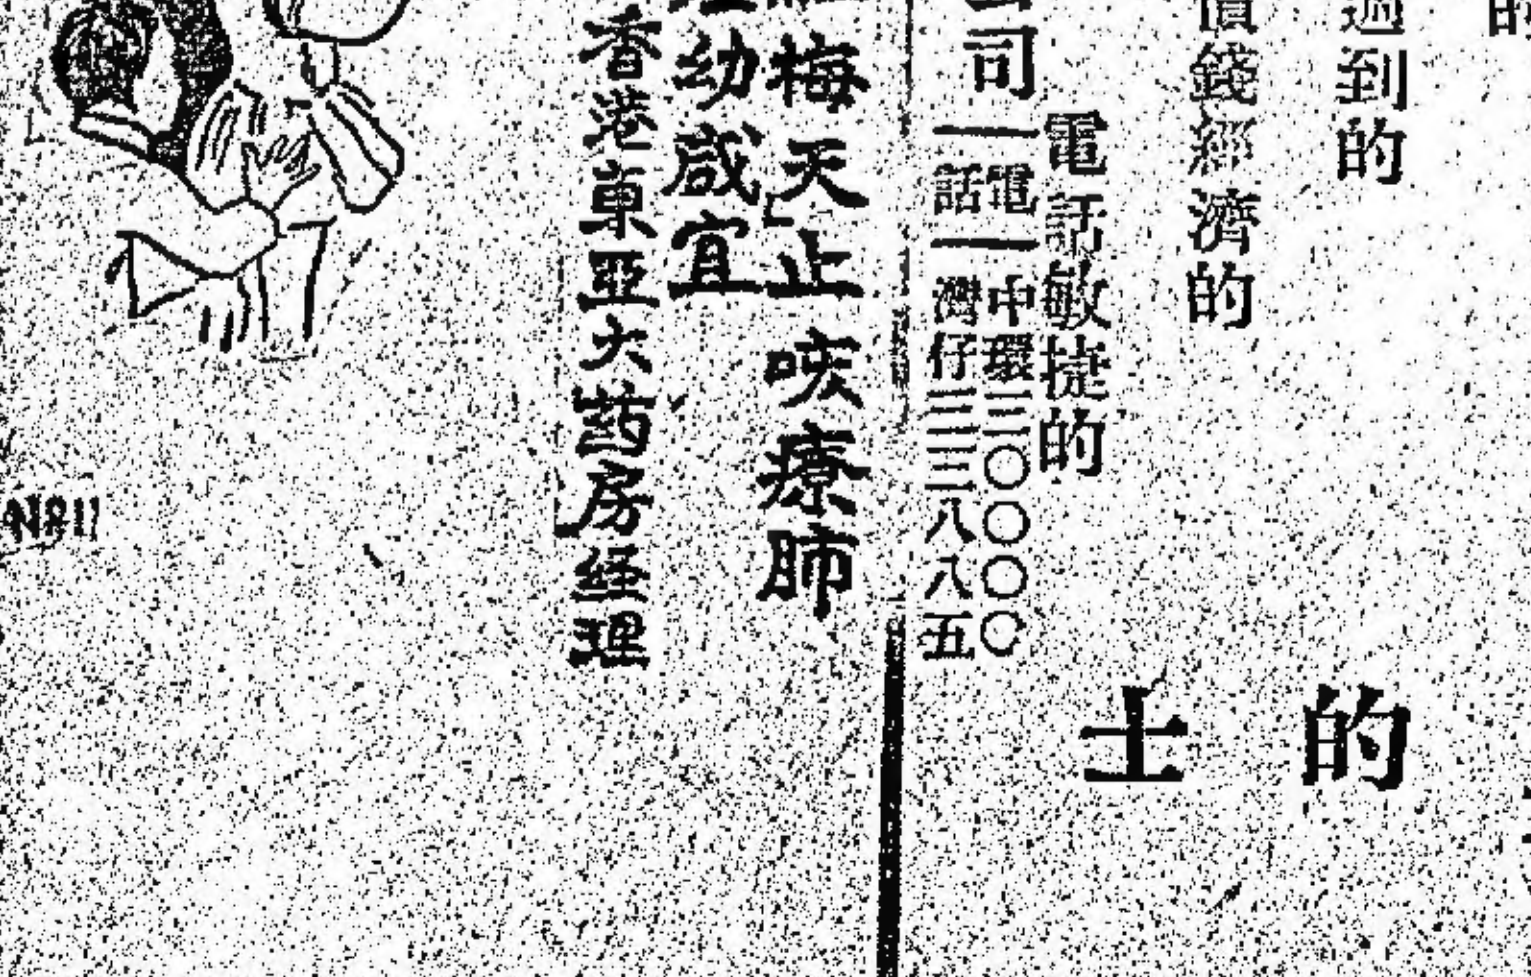 過到的
價錢經濟的
電話敏捷的
的士
司
電話
中環三〇〇〇〇
灣仔三三八八五
梅天止咳療肺
幼咸宜
香港東亞大葯房經理